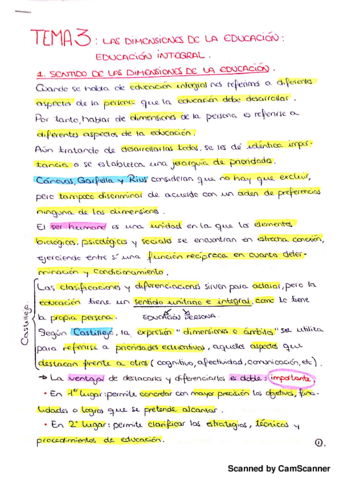 TEMA 3: LAS DIMENSIONES DE LA EDUCACIÓN:
EDUCACIÓN INTEGRAL.
1. SENTIDO DE LAS DIMENSIONES DE LA EDUCACIÓN.
Cuando se habla de educación integral nos referimos a diferentes
aspectos de la persona que la educación debe desarrollar.
Por tanto, hablar de dimensiones de la persona es referirse a
diferentes aspectos de la educación.
Aún tratando de desarrollarlas todas, se les da idéntica impor-
tancia o se establece una jerarquía de prioridades.
Cánovas, Gargella y Rius consideran que no hay que excluir,
pero tampoco discriminar de acuerdo con un orden de preferencias
ninguna de las dimensiones.
El ser humano es una unidad en la que los elementos
biológicos, psicológicos y sociales se encuentran en estrecha conexión,
ejerciendo entre sí una función recíproca en cuanto deter-
minación y condicionamiento.
Las clasificaciones y diferenciaciones sirven para aclarar, pero la
educación tiene un sentido unitario e integral, como lo tiene
la propia persona. EDUCACIÓN PERSONA
Castillejo
Según Castillejo, la expresión "dimensiones o ámbitos" se utiliza
para referirse a prioridades educativas, aquellos aspectos que
destacan frente a otros (cognitivo, afectividad, comunicación, etc).
→ La ventaja de destacarlas y diferenciarlas es doble: importante.
• En 1º lugar: permite concretar con mayor precisión los objetivos, fina-
lidades o logros que se pretende alcanzar.
• En 2º lugar: permite clarificar las estrategias, técnicas y
procedimientos de educación.
1.
Scanned by CamScanner